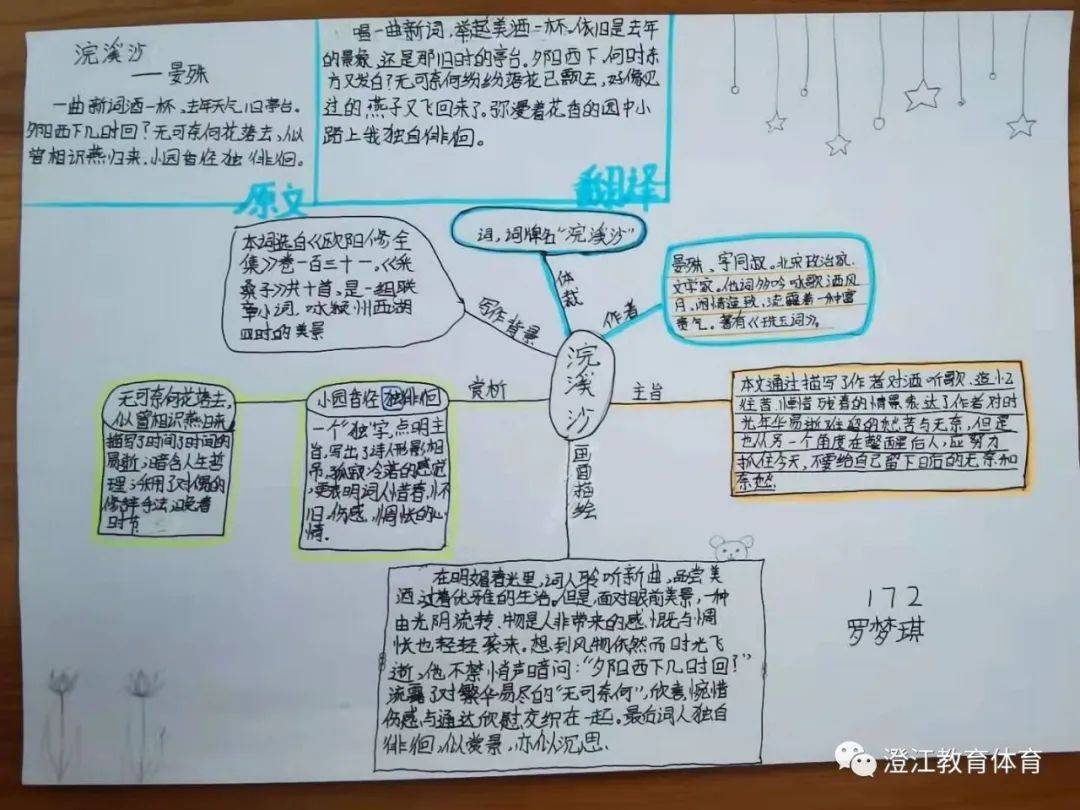 浣溪沙
——晏殊
一曲新词酒一杯,去年天气旧亭台。
夕阳西下几时回?无可奈何花落去,似
曾相识燕归来,小园香径独徘徊。
原文
唱一曲新词,举起美酒一杯。依旧是去年
的景致,还是那旧时的亭台。夕阳西下,何时东
方又发白?无可奈何纷纷落花已飘去,好像见
过的燕子又飞回来了。弥漫着花香的园中小
路上我独自徘徊。
翻译
本词选自《欧阳修全
集》卷一百三十一。《采
桑子》共十首,是一组联
章小词,咏颍州西湖
四时的美景
写作背景
词,词牌名“浣溪沙”
体裁
晏殊、字同叔。北宋政治家、
文学家。他词多吟咏歌酒风
月,闲情 致,流露着一种富
贵气。著有《珠玉词》。
作者
浣溪沙
无可奈何花落去,
似曾相识燕归来
描写了时间了时间的
易逝,暗含人生哲
理;采用了对偶的
修辞手法,晚春
时节
小园香径独徘徊
一个“独”字,点明主
旨,写出了诗人形影相
吊,孤寂冷落的感觉
更表明词人惜春,怀
旧,伤感,惆怅的心
情.
赏析
主旨
本文通过描写了作者对酒听歌、
往昔,惜残春的情景表达了作者对时
光年华易逝 的愁苦与无奈,但是
也从另一个角度在警醒后人,应努力
抓住今天,不要给自己留下日后的无奈和
画面描绘
在明媚春光里,词人聆听新曲,品尝美
酒,过着优雅的生活。但是,面对眼前美景,一种
由光阴流转、物是人非带来的感慨与惆
怅也轻轻袭来。想到风物依然而时光飞
逝,他不禁悄声暗问:“夕阳西下几时回?”
流露了对繁华易尽的“无可奈何”,欣喜惋惜
伤感与通达欣慰交织在一起。最后词人独自
徘徊,似赏景,亦似沉思.
172
罗梦琪
澄江教育体育